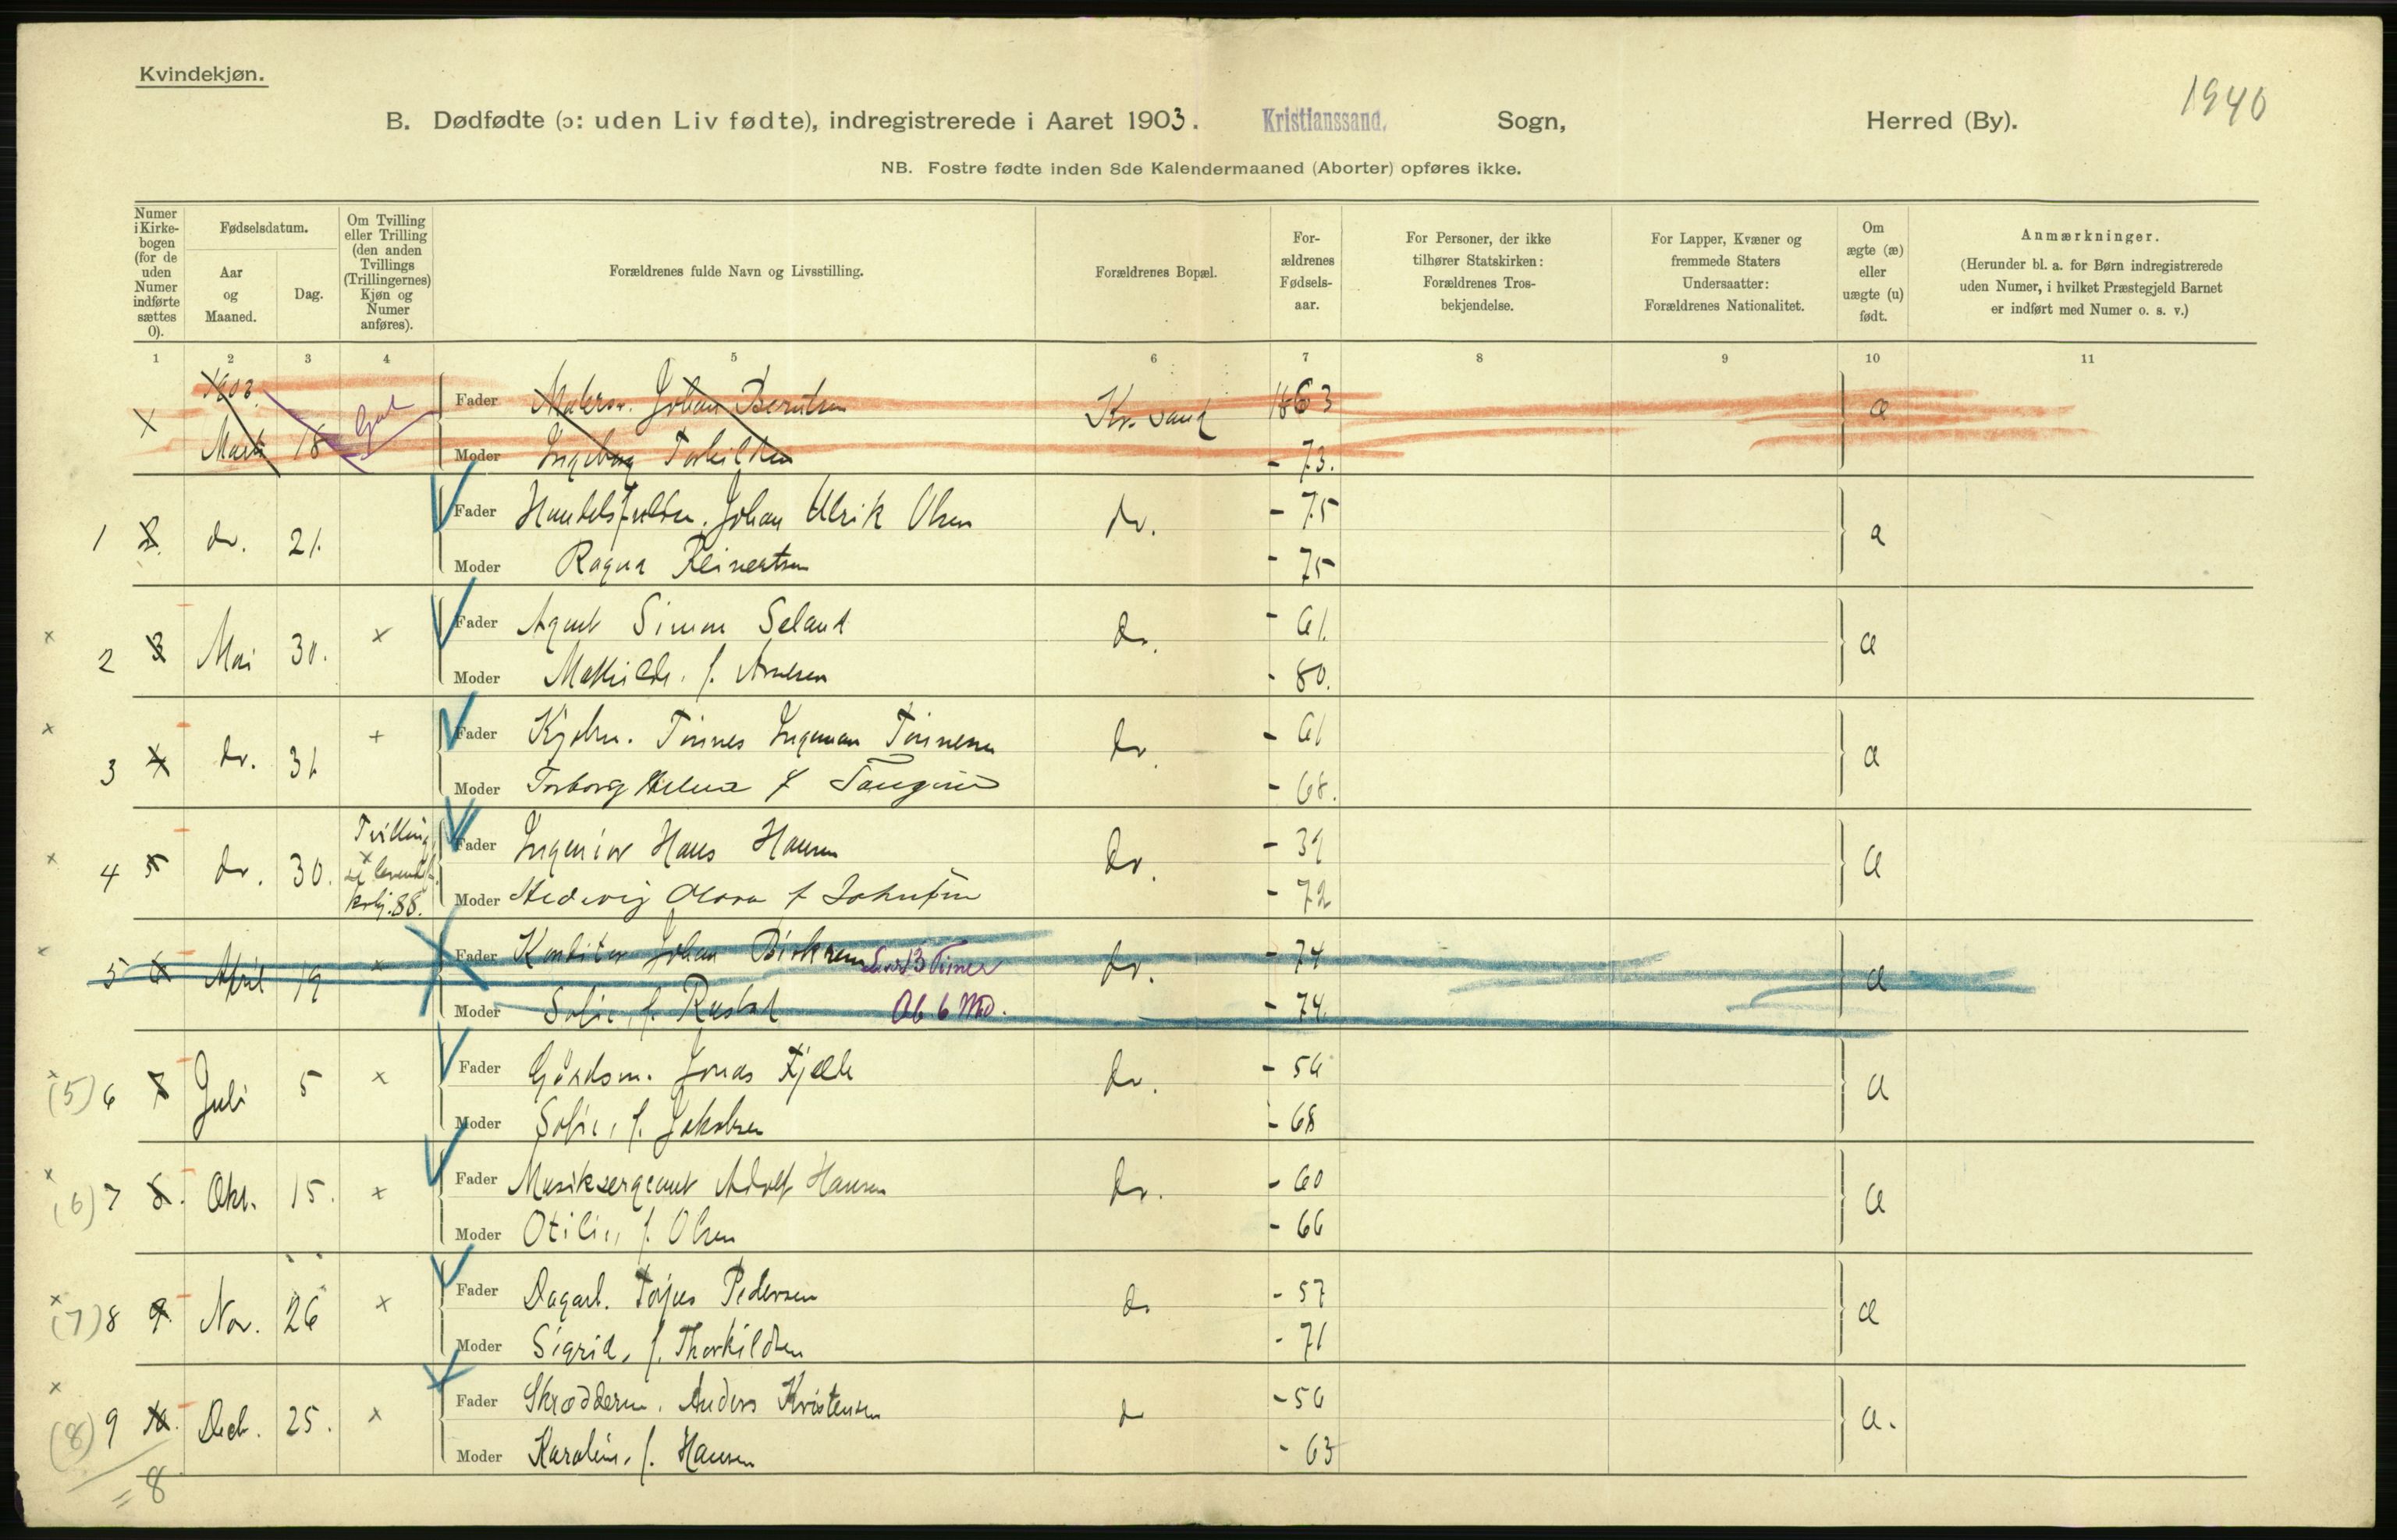 Kvindekjøn.
1940
B. Dødfødte (ɔ: uden Liv fødte), indregistrerede i Aaret 1903. Kristianssand. Sogn, Herred (By).
NB. Fostre fødte inden 8de Kalendermaaned (Aborter) opføres ikke.
Numer i Kirke-bogen (for de uden Numer indførte sættes 0).
Fødselsdatum.
Aar og Maaned.
Dag.
Om Tvilling eller Trilling (den anden Tvillings (Trillingernes) Kjøn og Numer anføres).
Forældrenes fulde Navn og Livsstilling.
Forældrenes Bopæl.
For-ældrenes Fødsels-aar.
For Personer, der ikke tilhører Statskirken: Forældrenes Tros-bekjendelse.
For Lapper, Kvæner og fremmede Staters Undersaatter: Forældrenes Nationalitet.
Om ægte (æ) eller uægte (u) født.
Anmærkninger.
(Herunder bl. a. for Børn indregistrerede uden Numer, i hvilket Præstegjeld Barnet er indført med Numer o. s. v.)
1 2 3 4 5 6 7 8 9 10 11
1903. Fader Malersv. Johan Berntsen Kr.sand 1863 æ
x Marts 18 Gut Moder Ingeborg Torkildsen - 73.
Fader Johan Ulrik Olsen do. - 75
1 2. do. 21. æ
Moder Ragna Reinertsen - 75
x Fader Agent Simon Seland do. - 61.
2 3 Mai 30. x æ
Moder Mathilde, f. Arnesen - 80.
x Fader Tønnes Ingeman Tønnesen do. - 61
3 4 do. 31 + æ
Moder Torborg Helene f - 68.
x Tvilling Fader Ingeniør Hans Hansen do. - 39
4 5 do. 30. æ
88. Moder Hedevig f Johnsen - 72
Fader Konditor Johan Birkrem Levet 3 Timer do. - 74
5 6 April 19 x æ
Moder Sofie, f. Rustad Ab 6 Md. - 74.
x Fader Gårdsm. Jonas Fjelde do. - 56
(5) 6 7 Juli 5 x æ
Moder Sofie, f. Jakobsen - 68
x Fader Musiksergeant Adolf Hansen do. - 60
(6) 7 8. Okt. 15. x æ
Moder Otilie, f. Olsen - 66
x Fader Dagarb. Torjus Pedersen do - 57
(7) 8 9. Nov. 26 x æ
Moder Sigrid, f. Thorkildsen - 71
x Fader Skrædderm. Anders Kristensen do - 56
(8) 9 10. Decb. 25. x æ.
Moder Karoline, f. Hansen - 63
= 8